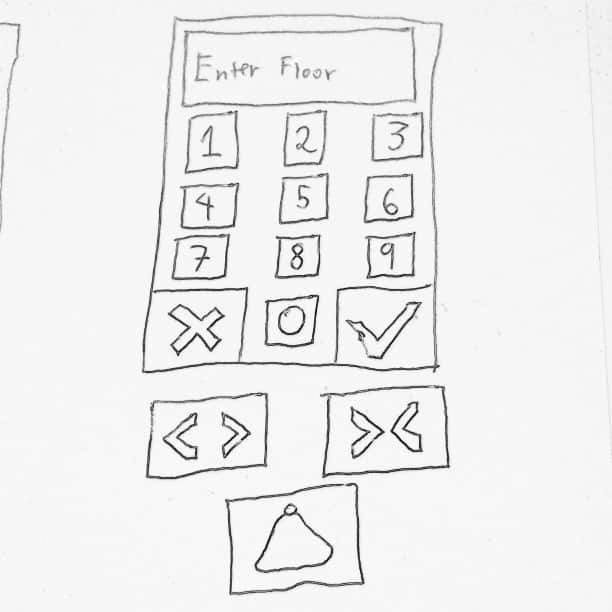 Enter Floor
1 2 3
4 5 6
7 8 9
0
< >
> <